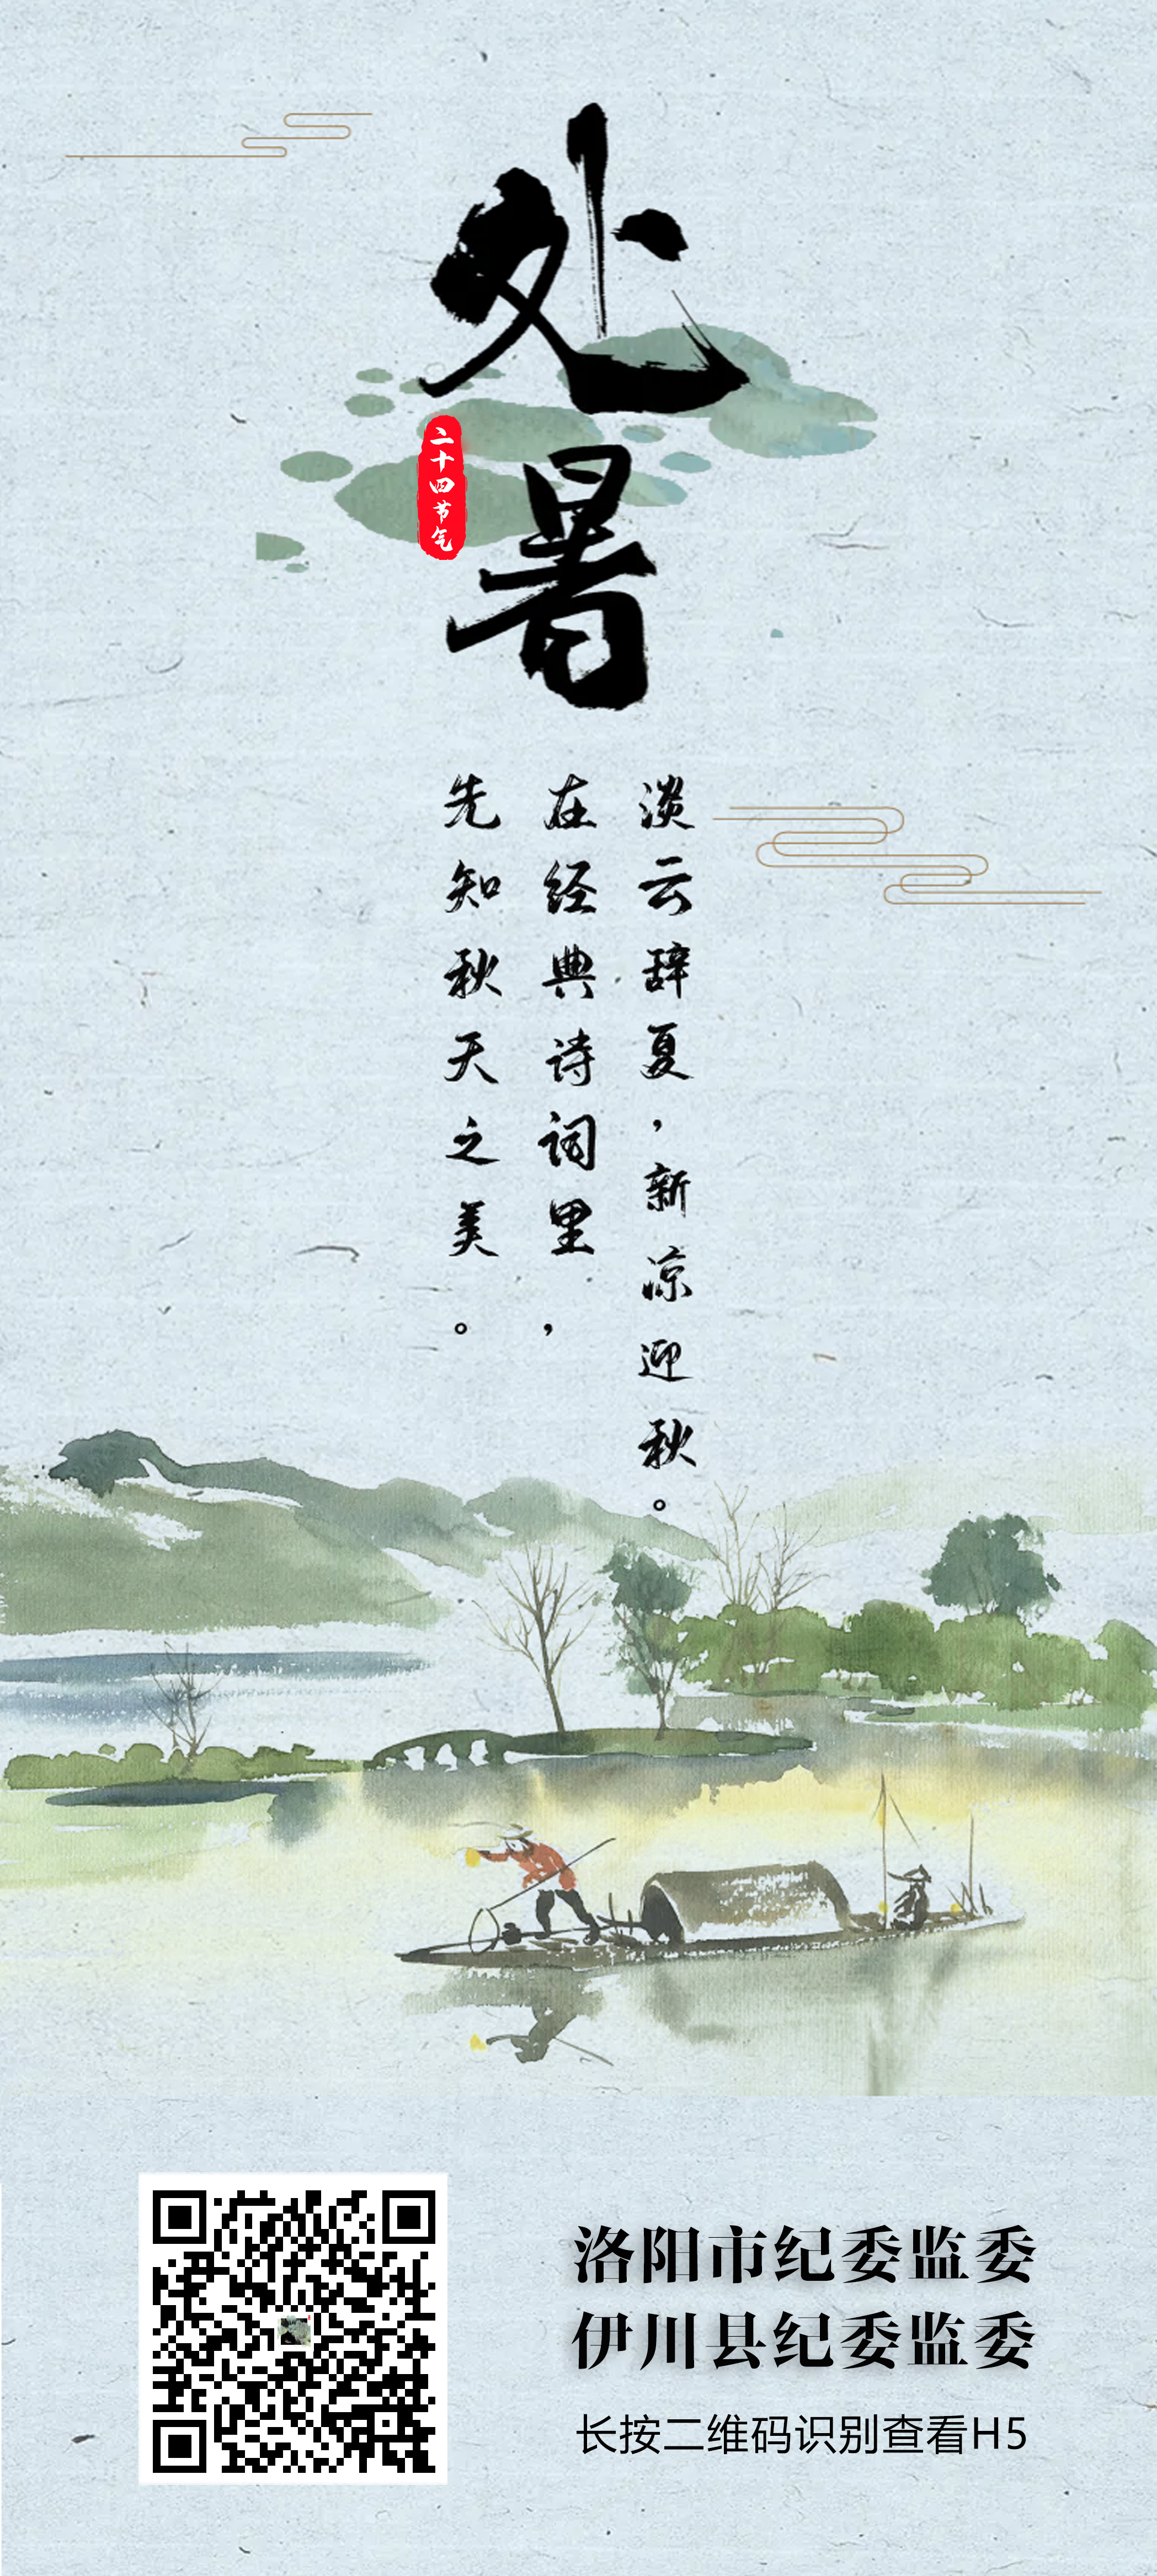 处暑
二十四节气
淡云辞夏，新凉迎秋。
在经典诗词里，
先知秋天之美。
洛阳市纪委监委
伊川县纪委监委
长按二维码识别查看H5